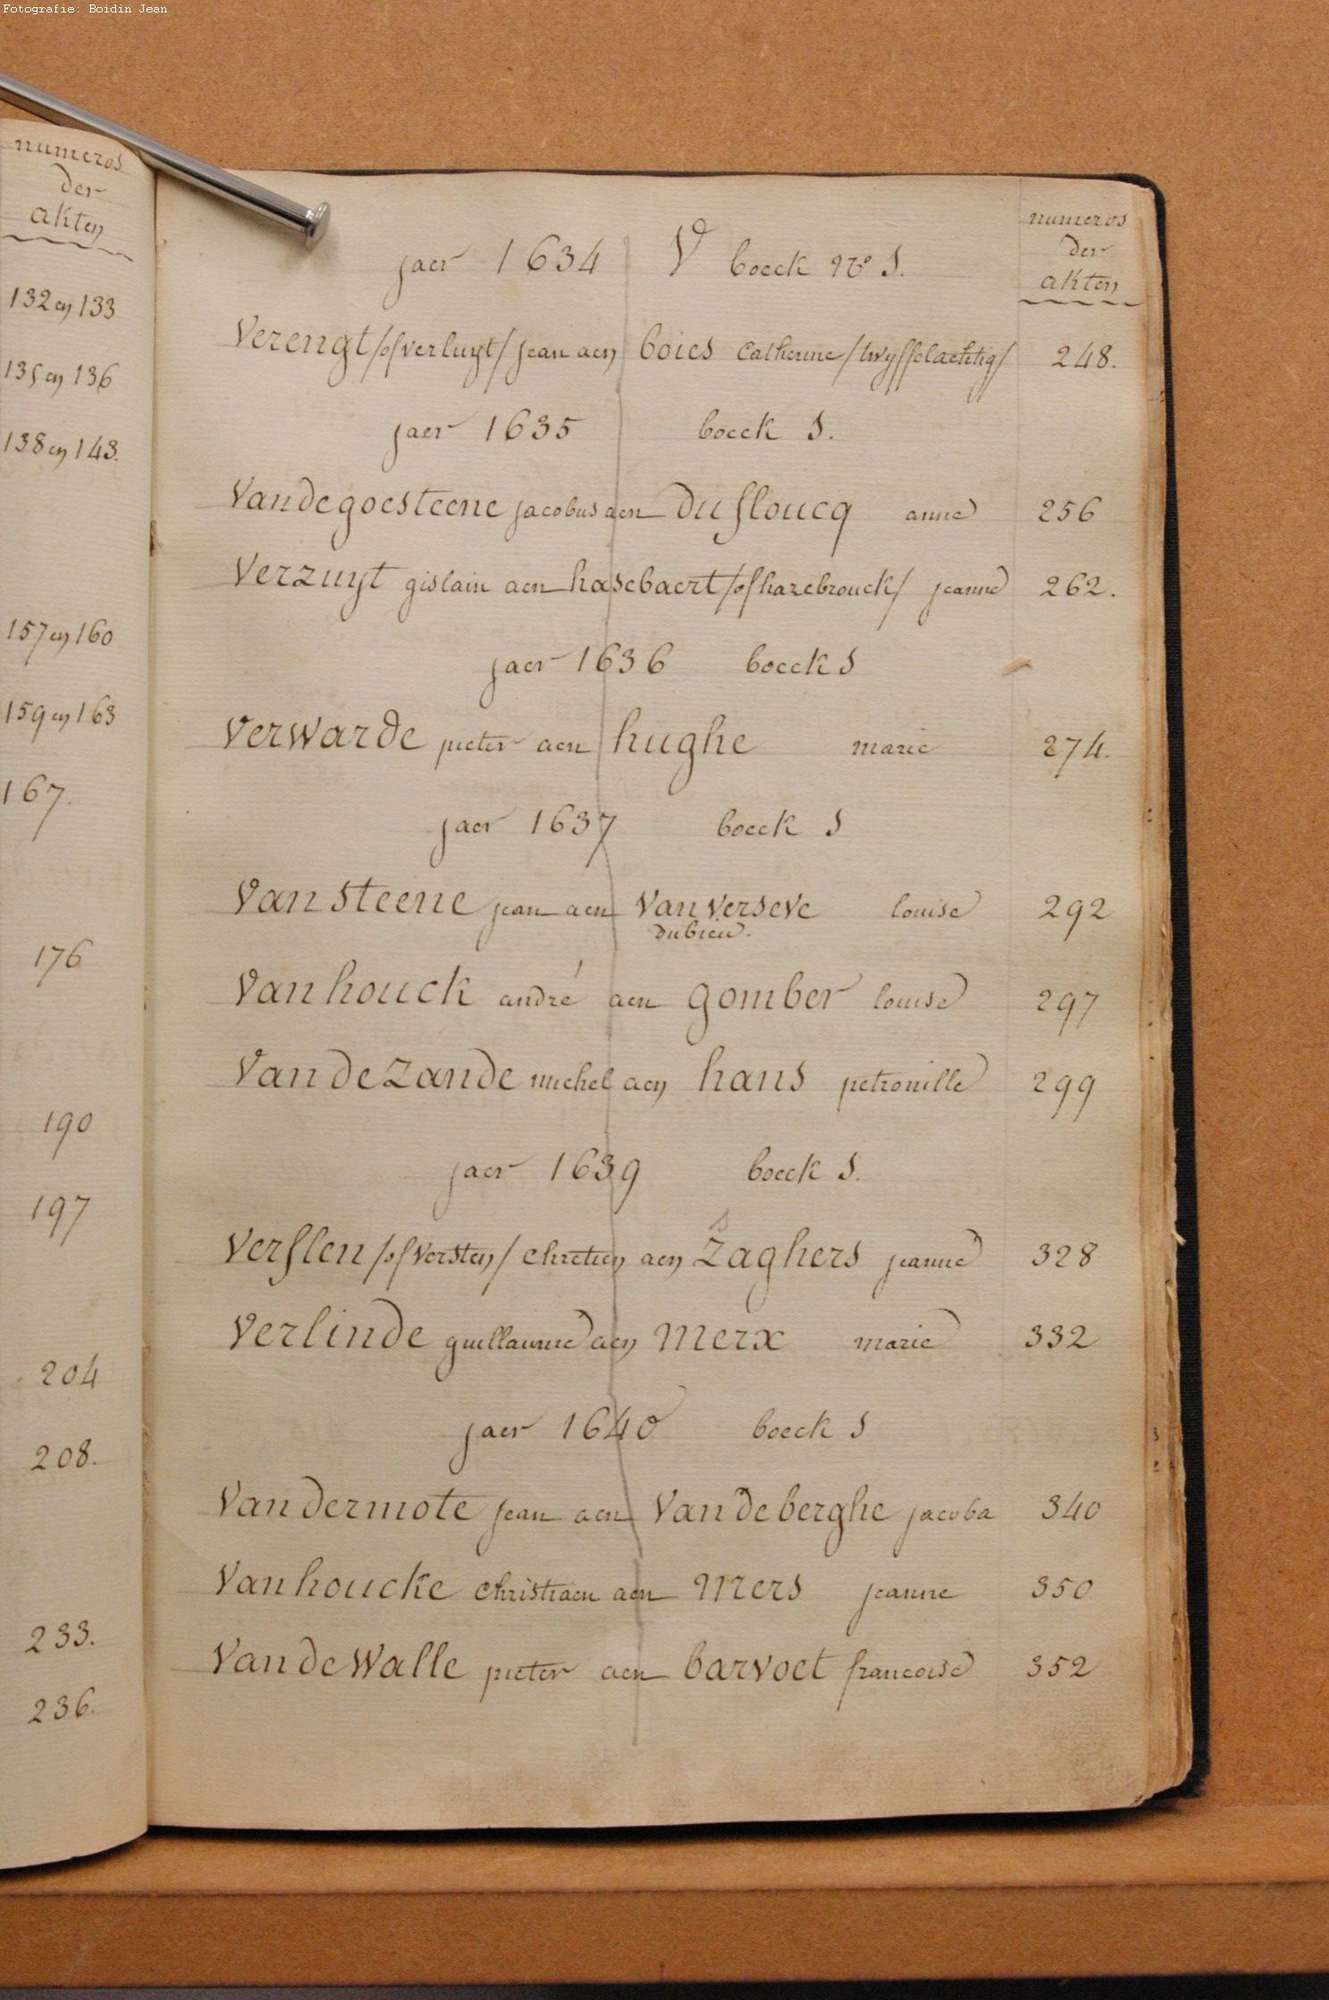 Fotografie: Boidin Jean
numeros
der
akten
132 en 133
135 en 136
138 en 143.
157 en 160
159 en 163
167.
176
190
197
204
208.
233.
236.
numeros
der
akten
jaer 1634 V boeck No S.
Verengt /of verluyt/ jean aen boies Catherine /twyffelachtig/ 248.
jaer 1635 boeck S.
Vandegoesteene jacobus aen Dufloucq anne 256
Verzuyt gislain aen hasebaert /of hazebrouck/ jeanne 262.
jaer 1636 boeck S
Verwarde pieter aen hughe marie 274.
jaer 1637 boeck S
Van Steene jean aen Van Verseve louise 292
dubieu.
Vanhouck andré aen gomber louise 297
Van de Zande michel aen hans petronille 299
jaer 1639 boeck S.
s
Verflen /of Versten/ chretien aen Zaghers jeanne 328
Verlinde guillaume aen Merx marie 332
jaer 1640 boeck S
Vandermote jean aen Van de berghe jacoba 340
Vanhoucke christiaen aen Mers jeanne 350
Van de Walle pieter aen barvoet francoise 352